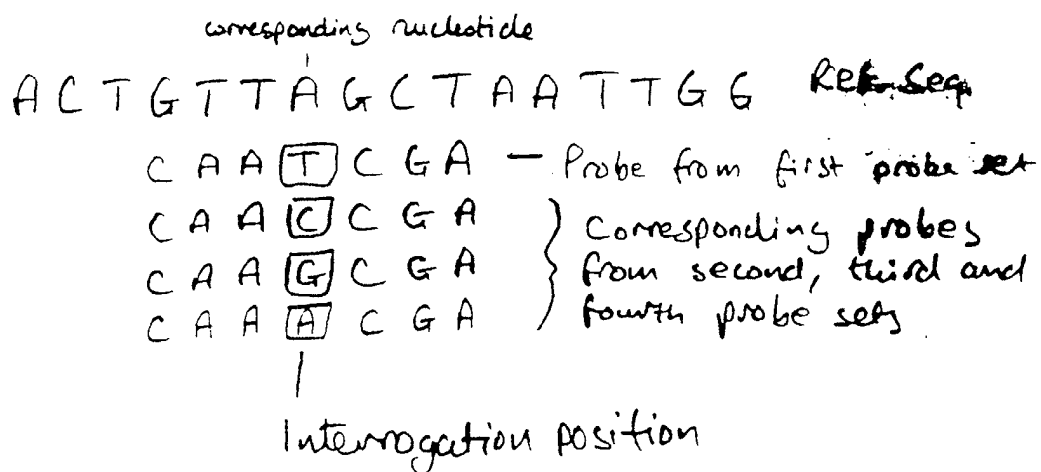 corresponding nucleotide
A C T G T T A G C T A A T T G G Ref Seq
C A A T C G A — Probe from first probe set
C A A C C G A } Corresponding probes
C A A G C G A from second, third and
C A A A C G A fourth probe sets
Interrogation position